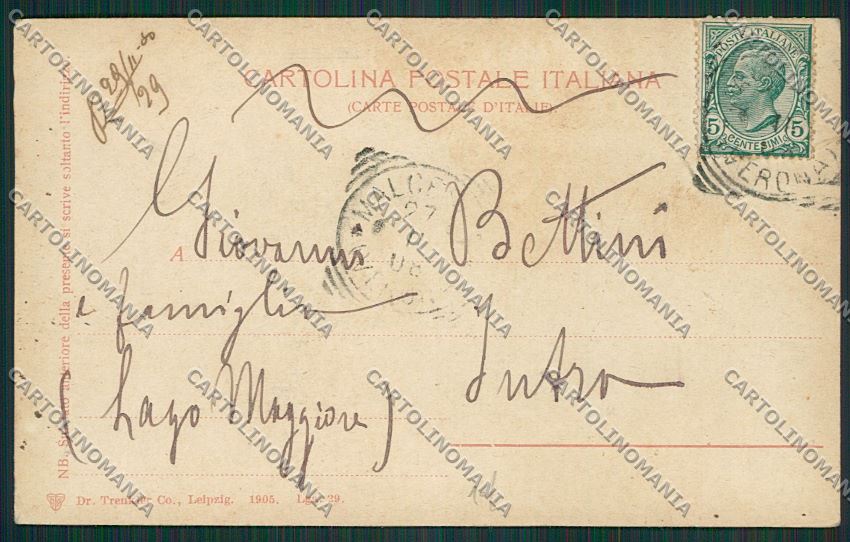 29/11-00
29
CARTOLINA POSTALE ITALIANA
(CARTE POSTALE D'ITALIE)
POSTE ITALIANE
5 CENTESIMI 5
VERONA
MALCE
27
11
06
A Giovanni Bettini
e famiglia
Intra
(Lago Maggiore)
NB. Sul lato anteriore della presente si scrive soltanto l'indirizzo
Dr. Trenkler Co., Leipzig. 1905. Lga. 29.
CARTOLINOMANIA